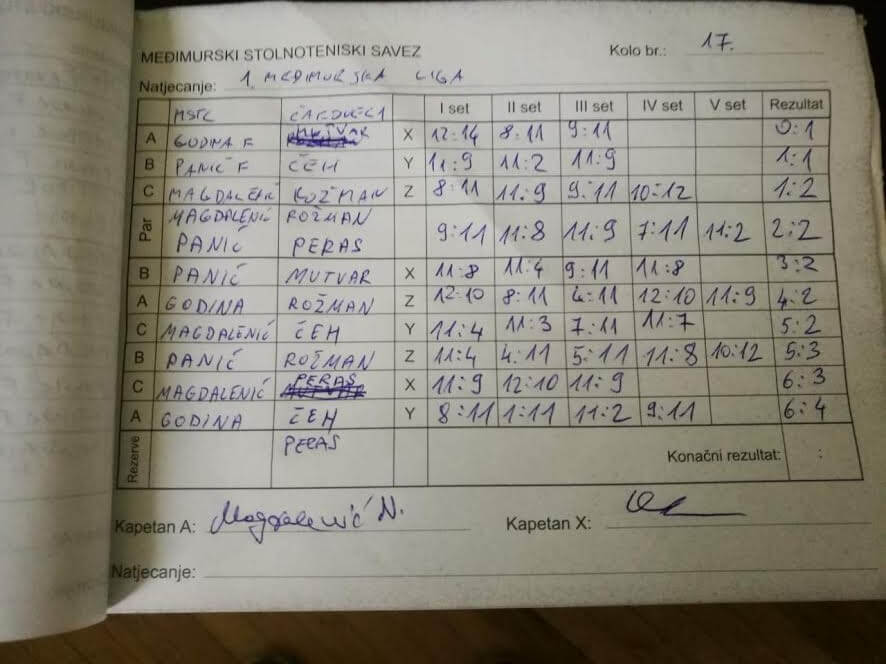 MEĐIMURSKI STOLNOTENISKI SAVEZ Kolo br.: 17.
Natjecanje: 1. MEĐIMURSKA LIGA
MSTC ČAKOVEC 1 I set II set III set IV set V set Rezultat
A GODINA F MUTVAR X 12:14 8:11 9:11 0:1
B PANIĆ F ČEH Y 11:9 11:2 11:9 1:1
C MAGDALENIĆ ROŽMAN Z 8:11 11:9 9:11 10:12 1:2
Par MAGDALENIĆ ROŽMAN
PANIĆ PERAS 9:11 11:8 11:9 7:11 11:2 2:2
B PANIĆ MUTVAR X 11:8 11:4 9:11 11:8 3:2
A GODINA ROŽMAN Z 12:10 8:11 4:11 12:10 11:9 4:2
C MAGDALENIĆ ČEH Y 11:4 11:3 7:11 11:7 5:2
B PANIĆ ROŽMAN Z 11:4 4:11 5:11 11:8 10:12 5:3
C MAGDALENIĆ PERAS X 11:9 12:10 11:9 6:3
A GODINA ČEH Y 8:11 1:11 11:2 9:11 6:4
Rezerve PERAS Konačni rezultat: :
Kapetan A: Magdalenić N. Kapetan X:
Natjecanje: